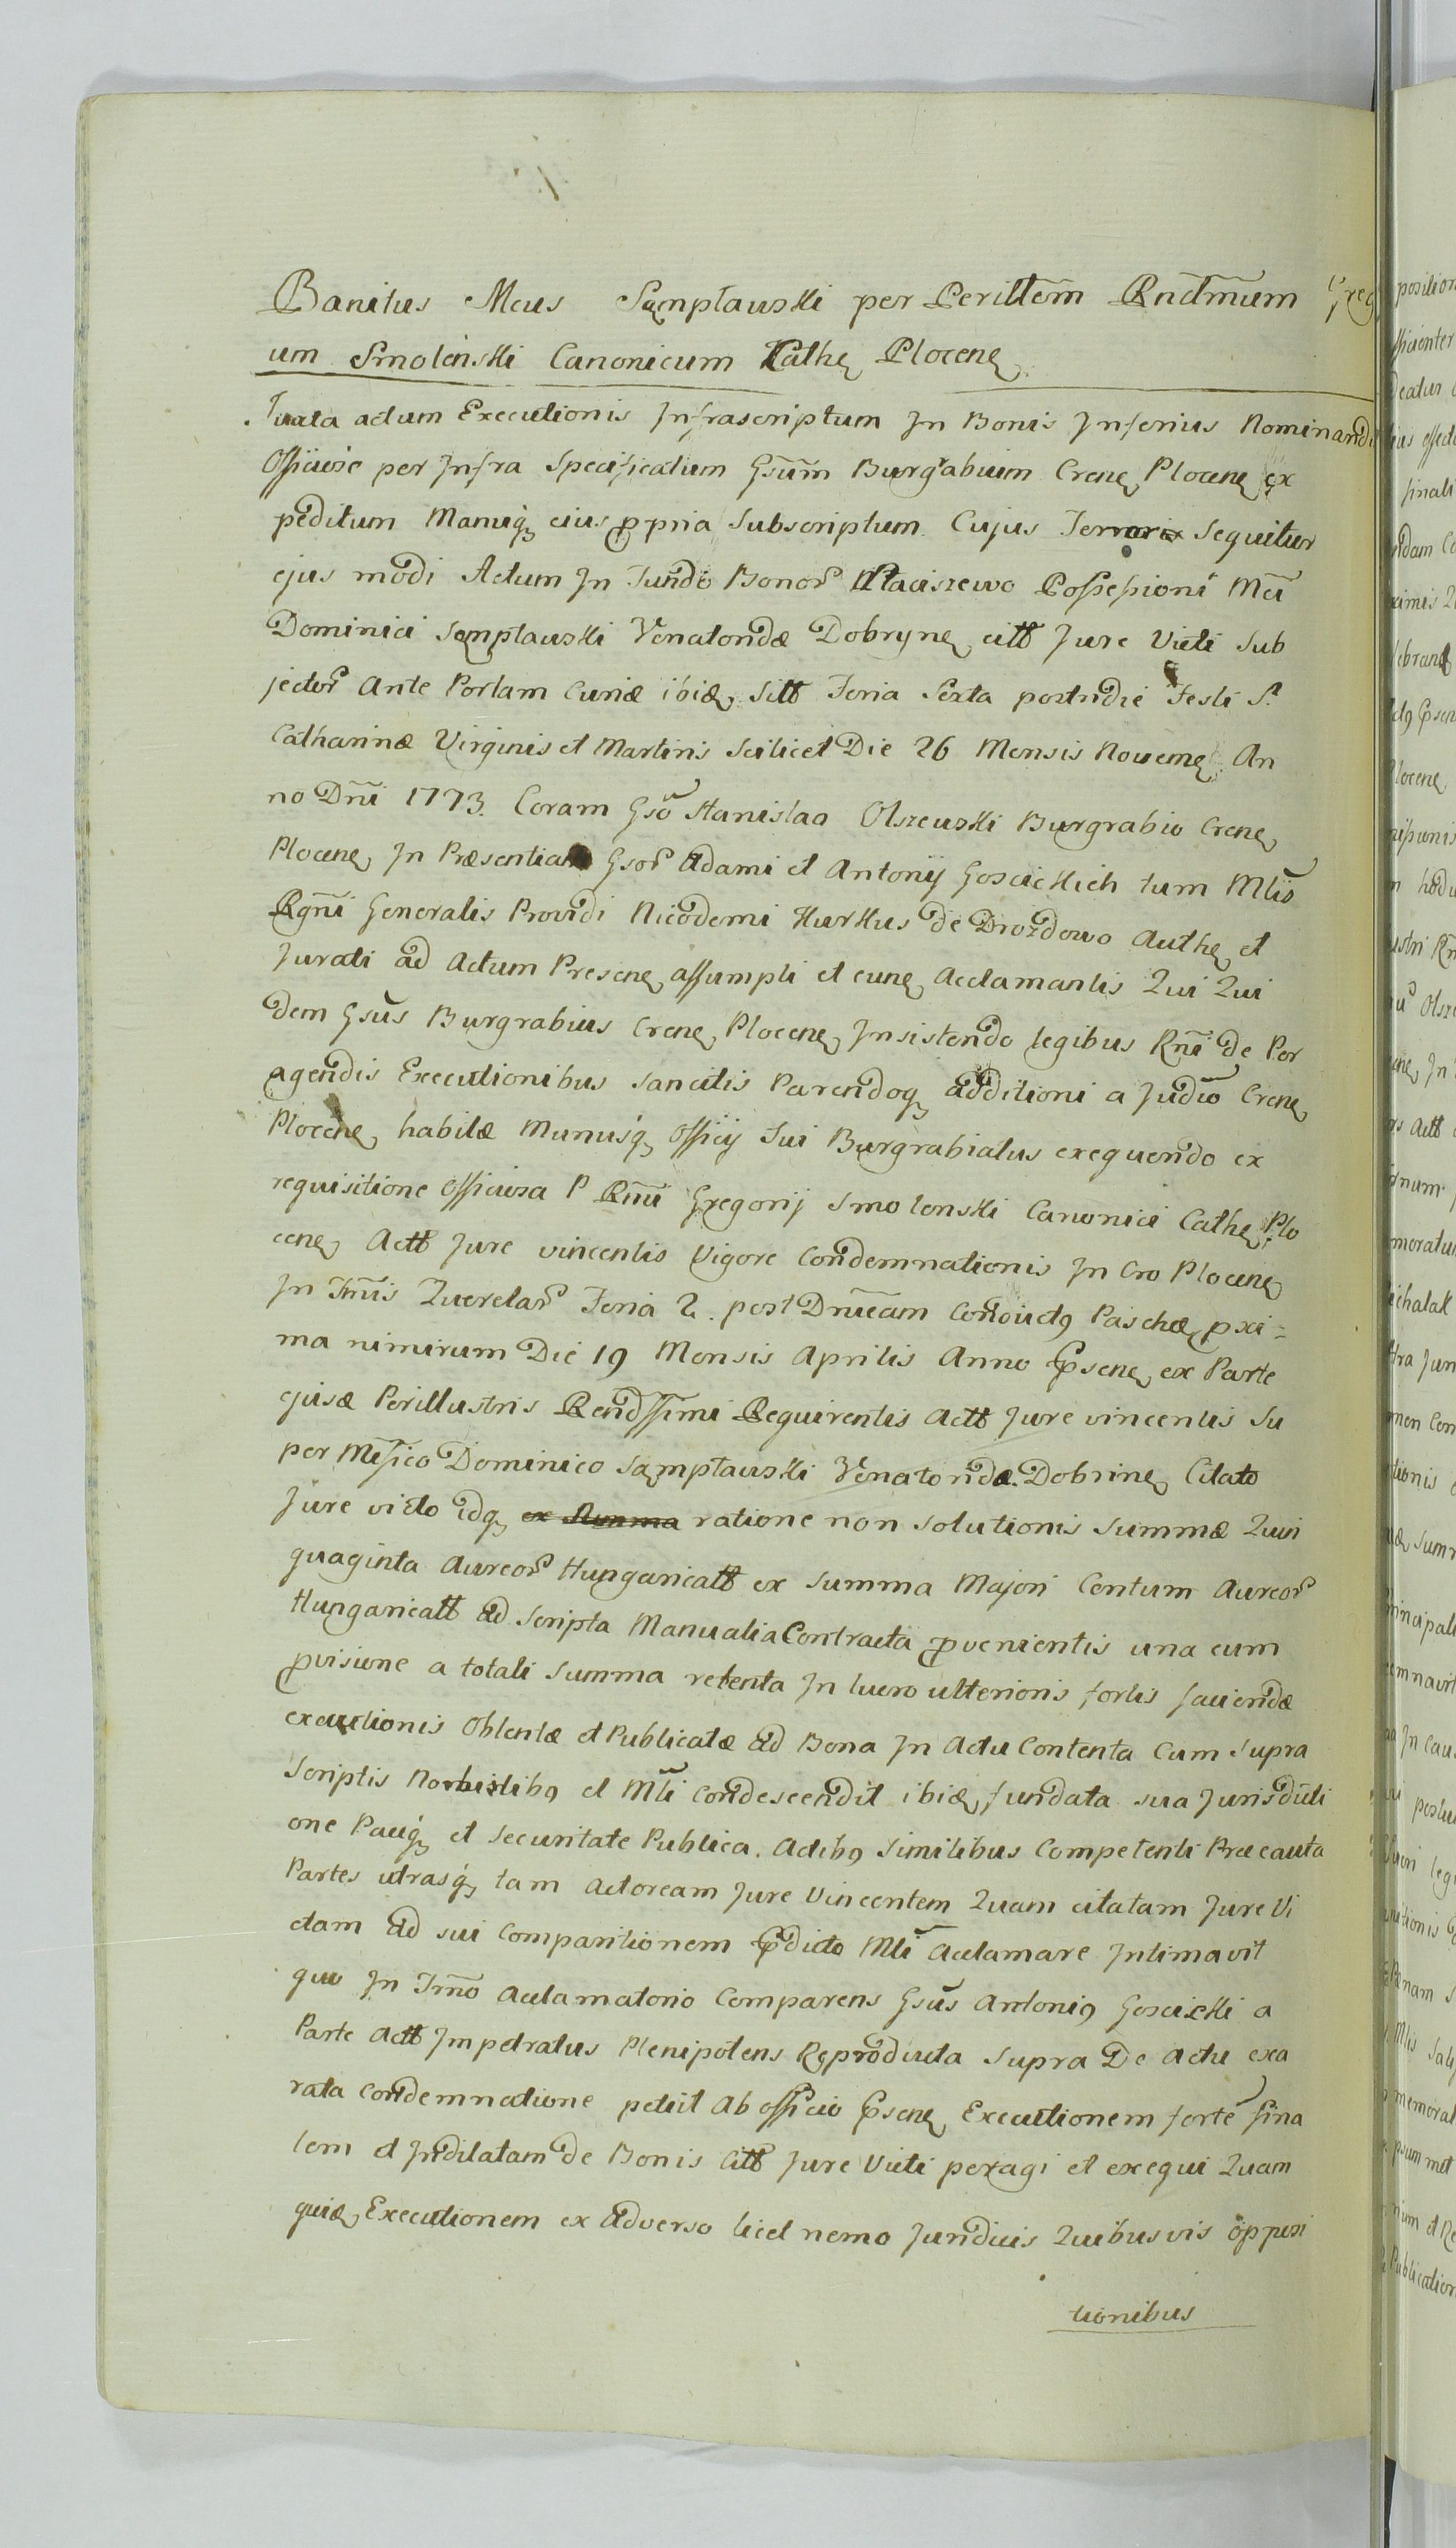 Banitus Mcus Sęmpławski per Perilltem Rndmum Greg
um Smolenski Canonicum Cathę Plocenę
Juxta actum Executionis Infrascriptum In Bonis Inferius Nominandis
Officiose per Infra Specificatum Gsum Burgrabium Crenę Plocenę ex
peditum Manuq; eius ppria Subscriptum Cujus Sequitur
ejus modi Actum In Fundo Bonor Płaciszewo Possessioni Mci
Dominici Sęmpławski Venatoridæ Dobrynę citt Jure Victi Sub
jector Ante Portam Curiæ ibidę sitt Feria Sexta postridie Festi S.
Catharinæ Virginis et Martiris Scilicet Die 26 Mensis Novemę An
no Dñi 1773. Coram Gso Stanislao Olszewski Burgrabio Crenę
Plocenę In Præsentia Gsor Adami et Antonij Goscickich tum Mlis
Rgni Generalis Providi Nicodemi Kurkus de Drozdowo Authę et
Jurati ad Actum Presenę assumpti et eunę Acclamantis Qui Qui
dem Gsus Burgrabius Crenę Plocenę Insistendo legibus Rni de Per
agendis Executionibus sancitis Parendoq; additioni a Judio Crenę
Plocenę habitæ Munusq; Officij Sui Burgrabiatus exequendo ex
requisitione officiosa P Rmi Gregorij Smolenski Canonici Cathę Plo
cenę Actt Jure vincentis Vigore Condemnationis In Cro Plocenę
In Tmis Querelar Feria 2. post Dnicam Conductq Paschæ pxi=
ma nimirum Die 19 Mensis Aprilis Anno Psenę ex Parte
ejusdæ Perillustris Rendssimi Requirentis Actt Jure vincentis Su
per Mfico Dominico Sęmpławski Venatoridæ Dobrinę Citato
Jure victo idq; ex Summa ratione non solutionis Summæ Quin
quaginta Aureor Hungaricatt ex Summa Majori Centum Aureor
Hungaricatt ad Scripta Manualia Contracta pvenientis una cum
pvisione a totali Summa retenta In lucro ulterioris fortis faciendæ
executionis Obtentæ et Publicatæ ad Bona In Actu Contenta Cum Supra
Scriptis Nobilibq et Mli Condescendit ibidę fundata sua Jurisdicti
one Paciq; et Securitate Publica. Actibq Similibus Competenti Præcauta
Partes utrasq; tam Actoream Jure Vincentem Quam citatam Jure Vi
ctam ad sui Comparitionem pdicto Mli Acclamare Intimavit
quo In Tmo Acclamatorio Comparens Gsus Antoniq Goscicki a
Parte Actt Impetratus Plenipotens Reproducta Supra De Actu exa
rata Condemnatione petiit Ab officio Psenę Executionem forte fina
lem et Indilatam de Bonis Citt Jure Victi peragi et exequi Quam
quidę Executionem ex Adverso licet nemo Juridicis Quibusvis opposi
tionibus